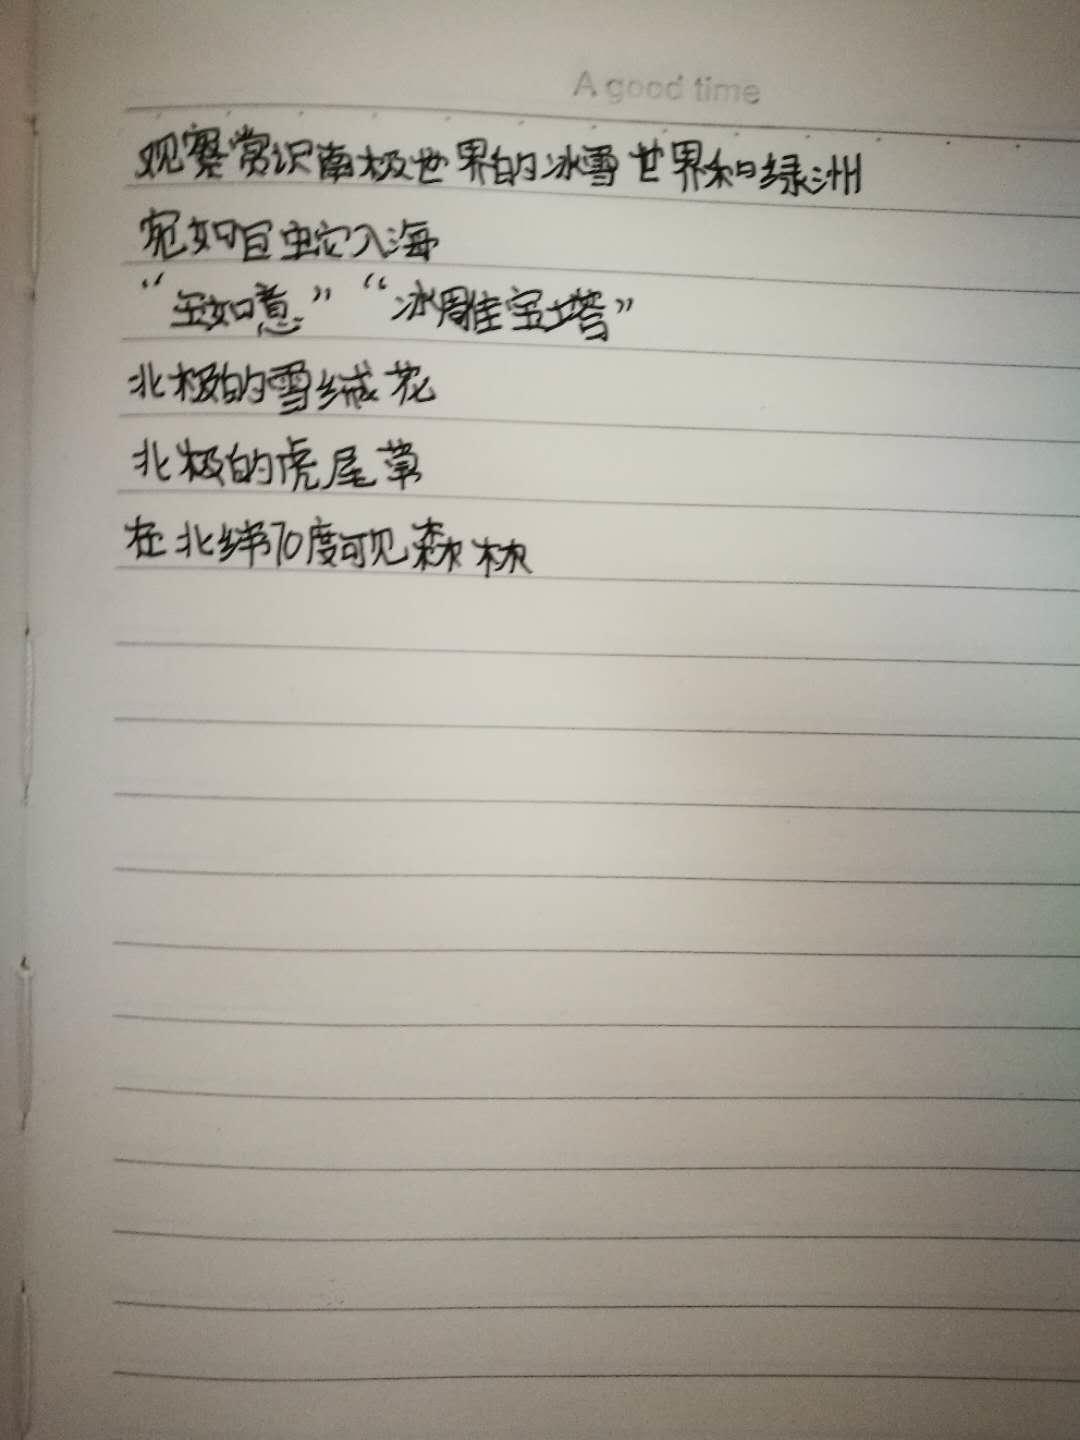 A good time
观察常识南极世界的冰雪世界和绿洲
宛如巨蛇入海
“玉如意”“冰雕宝塔”
北极的雪绒花
北极的虎尾草
在北纬70度可见森林